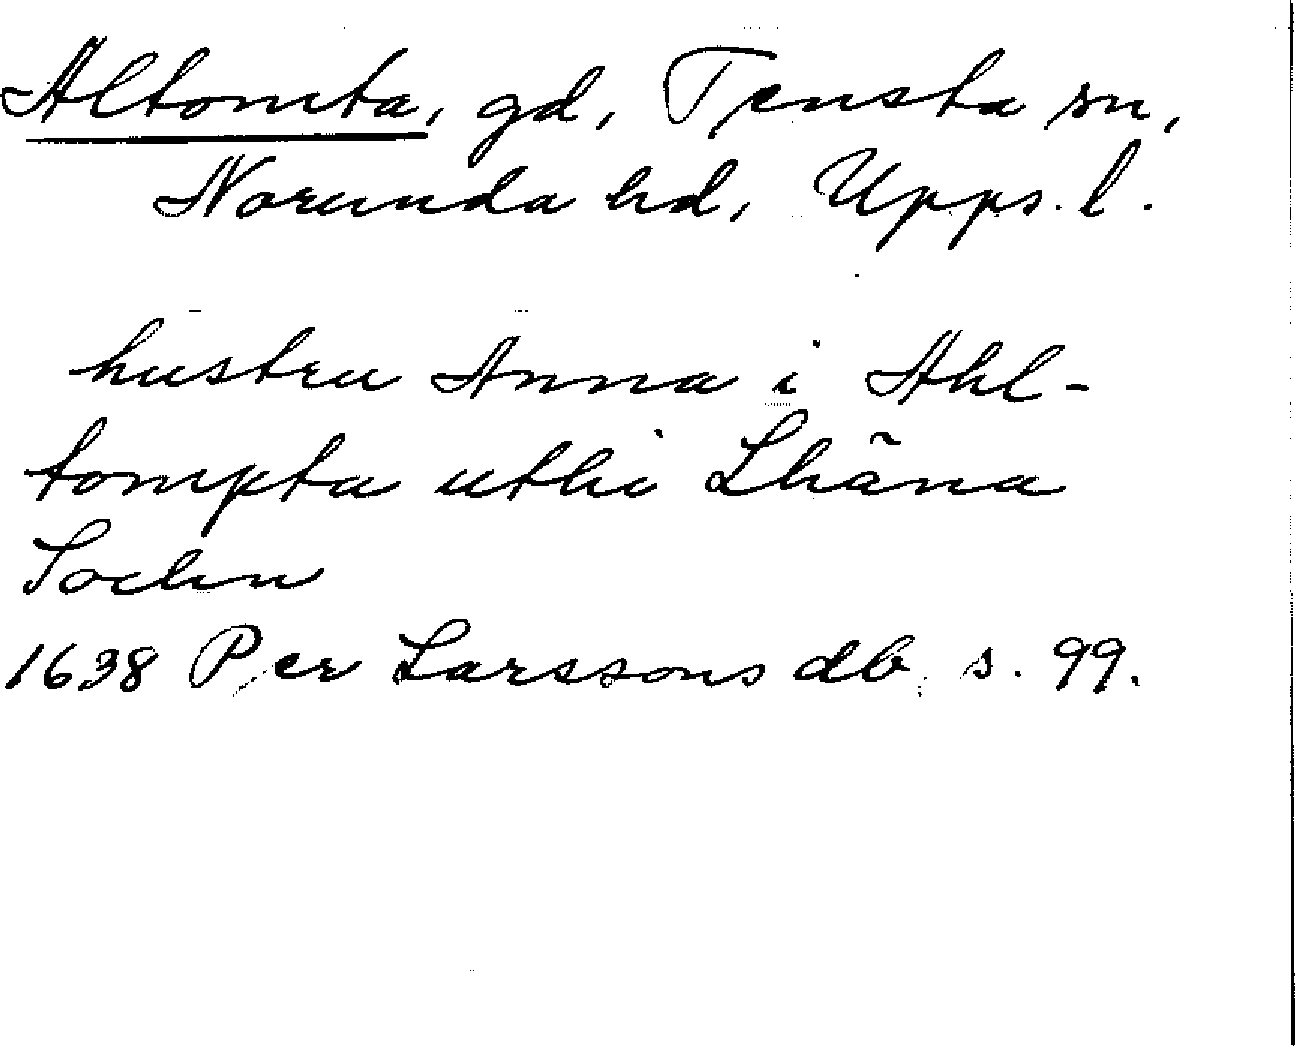 Altomta, gd, Tensta sn,
Norunda hd, Upps. l.
hustru Anna i Ahl-
tompta uthi Lhäna
Sochn
1638 Per Larssons db s. 99.